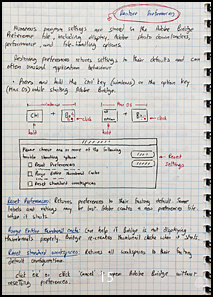 Restore Preferences
Numerous program settings are stored in the Adobe Bridge
Preference file, including display, Adobe photo downloader,
performance, and file-handling options.
Restoring preferences returns settings to their defaults and can
often unusual application behaviour.
Press and hold the Ctrl key (windows) or the option key
(Mac OS) while starting Adobe Bridge.
windows
Mac OS
Ctrl
+
Br
+
Br
hold
hold
Please choose one or more of the following
Reset Preferences
Purge Entire Thumbnail Cache
Reset Standard workspaces
Reset
settings
Reset Preferences Returns preferences to their factory default. Some
labels and ratings may be lost. Adobe creates a new preferences file
when it starts.
Purge Entire thumbnail cache can help if Bridge is not displaying
thumbnails properly. Bridge re-creates thumbnail cache when it starts.
Reset standard workspaces Returns all workspaces to their factory
default configuration.
click ok or click cancel to open Adobe Bridge without
resetting preferences.
15